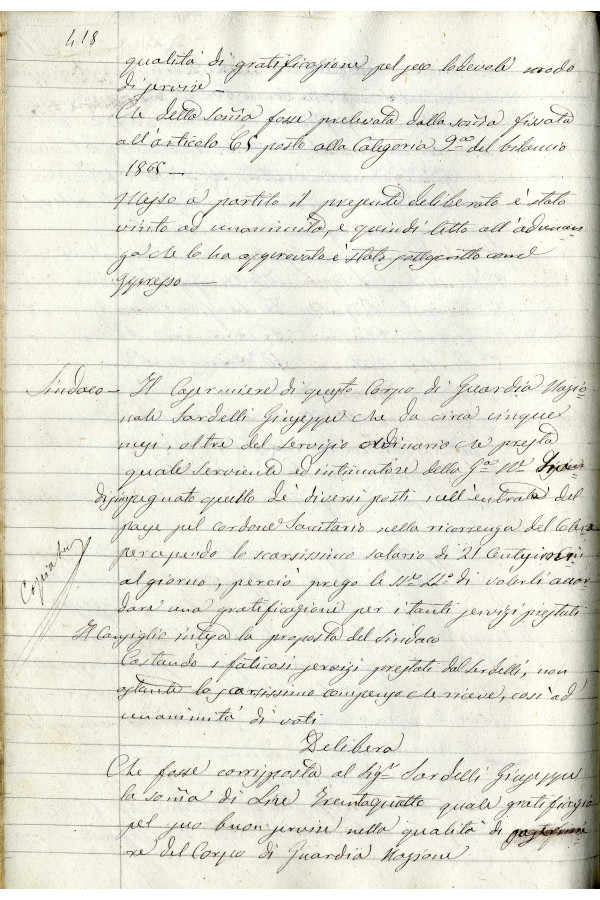 418
qualità di gratificazione pel suo lodevole modo
di servire —
Che detta somã fosse prelevata dalla somã fissata
all'articolo 65 posto alla Categoria 9.a del bilancio
1865 —
Messo a partito il presente deliberato è stato
vinto ad unanimità, e quindi letto all'adunan-
za che lo ha approvato è stato sottoscritto come
appresso —
Sindaco — Il Casermiere di questo Corpo di Guardia Nazio-
nale Sardelli Giuseppe che da circa cinque
mesi, oltre del servizio ordinario che presta
quale serviente ed intimatore della G.a N.le
disimpegnato quello de' diversi posti nell'entrata del
paese pel cordone Sanitario nella ricorrenza del Colera
percependo lo scarsissimo salario di 21 Centesimi
al giorno, perciò prego le SS.e LL.e di volerli accor-
dare una gratificazione per i tanti servizi prestati
Copiata
Il Consiglio intesa la proposta del Sindaco
Costando i faticosi servizi prestati dal Sardelli, non
ostante lo scarsissimo compenso che riceve, così ad
unanimità di voti
Delibera
Che fosse corrisposta al Sig.r Sardelli Giuseppe
la somã di Lire Trentaquattro quale gratificazio
pel suo buon servire nella qualità di
re del Corpo di Guardia Nazione